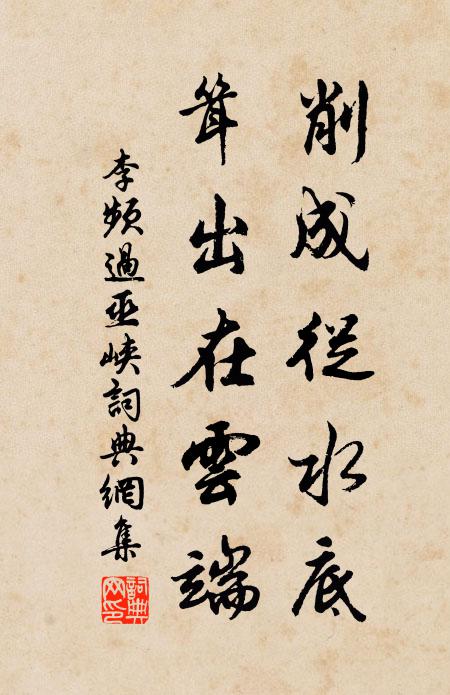 削成從水底
聳出在雲端
李頻過巫峽詞典網集
詞典網印